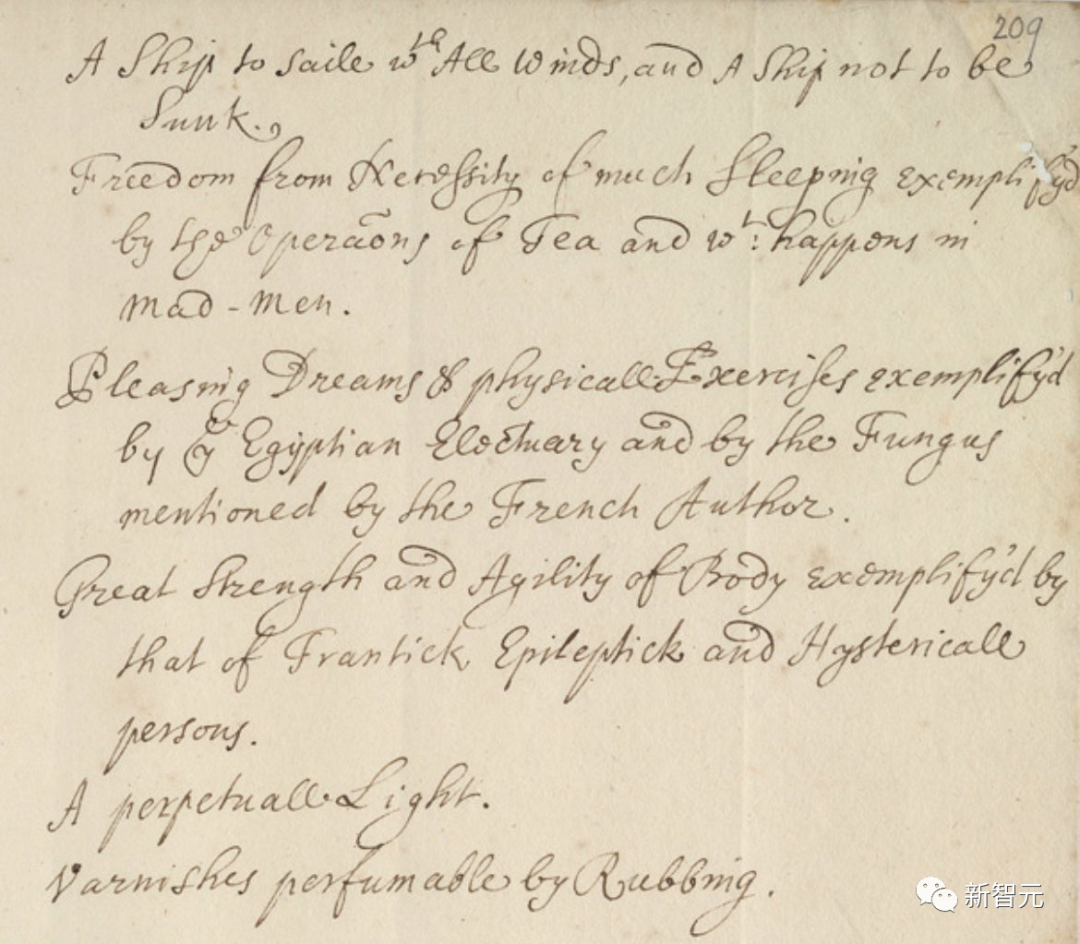 209
A Ship to saile wth All winds, and A Ship not to be
Sunk.
Freedom from Necessity of much Sleeping exemplify'd
by the Operaõns of Tea and wt: happens in
Mad-Men.
Pleasing Dreams & physicall Exercises exemplify'd
by ye Egyptian Electuary and by the Fungus
mentioned by the French Author.
Great Strength and Agility of Body exemplify'd by
that of Frantick Epileptick and Hystericall
persons.
A perpetuall Light.
Varnishes perfumable by Rubbing.
新智元